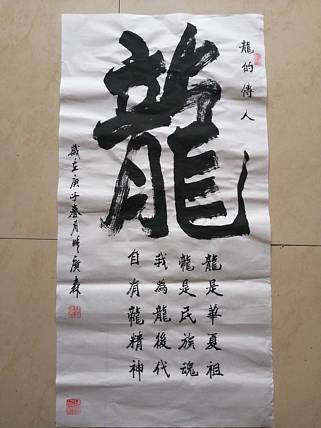 龍的傳人
龍
龍是華夏祖
龍是民族魂
我為龍後代
自有龍精神
歲在庚子春月